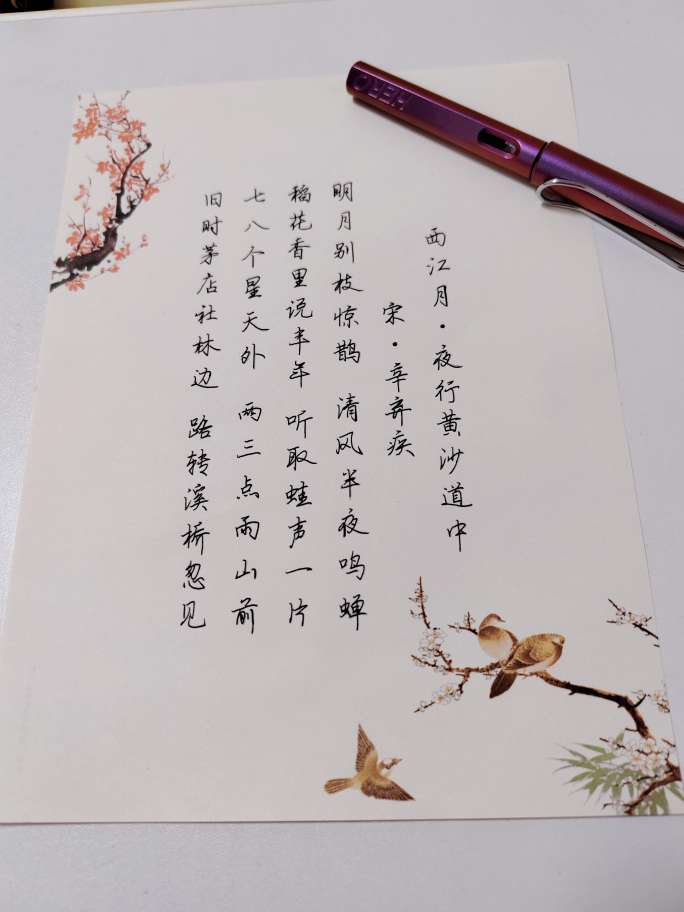 西江月·夜行黄沙道中
宋·辛弃疾
明月别枝惊鹊 清风半夜鸣蝉
稻花香里说丰年 听取蛙声一片
七八个星天外 两三点雨山前
旧时茅店社林边 路转溪桥忽见
HERO